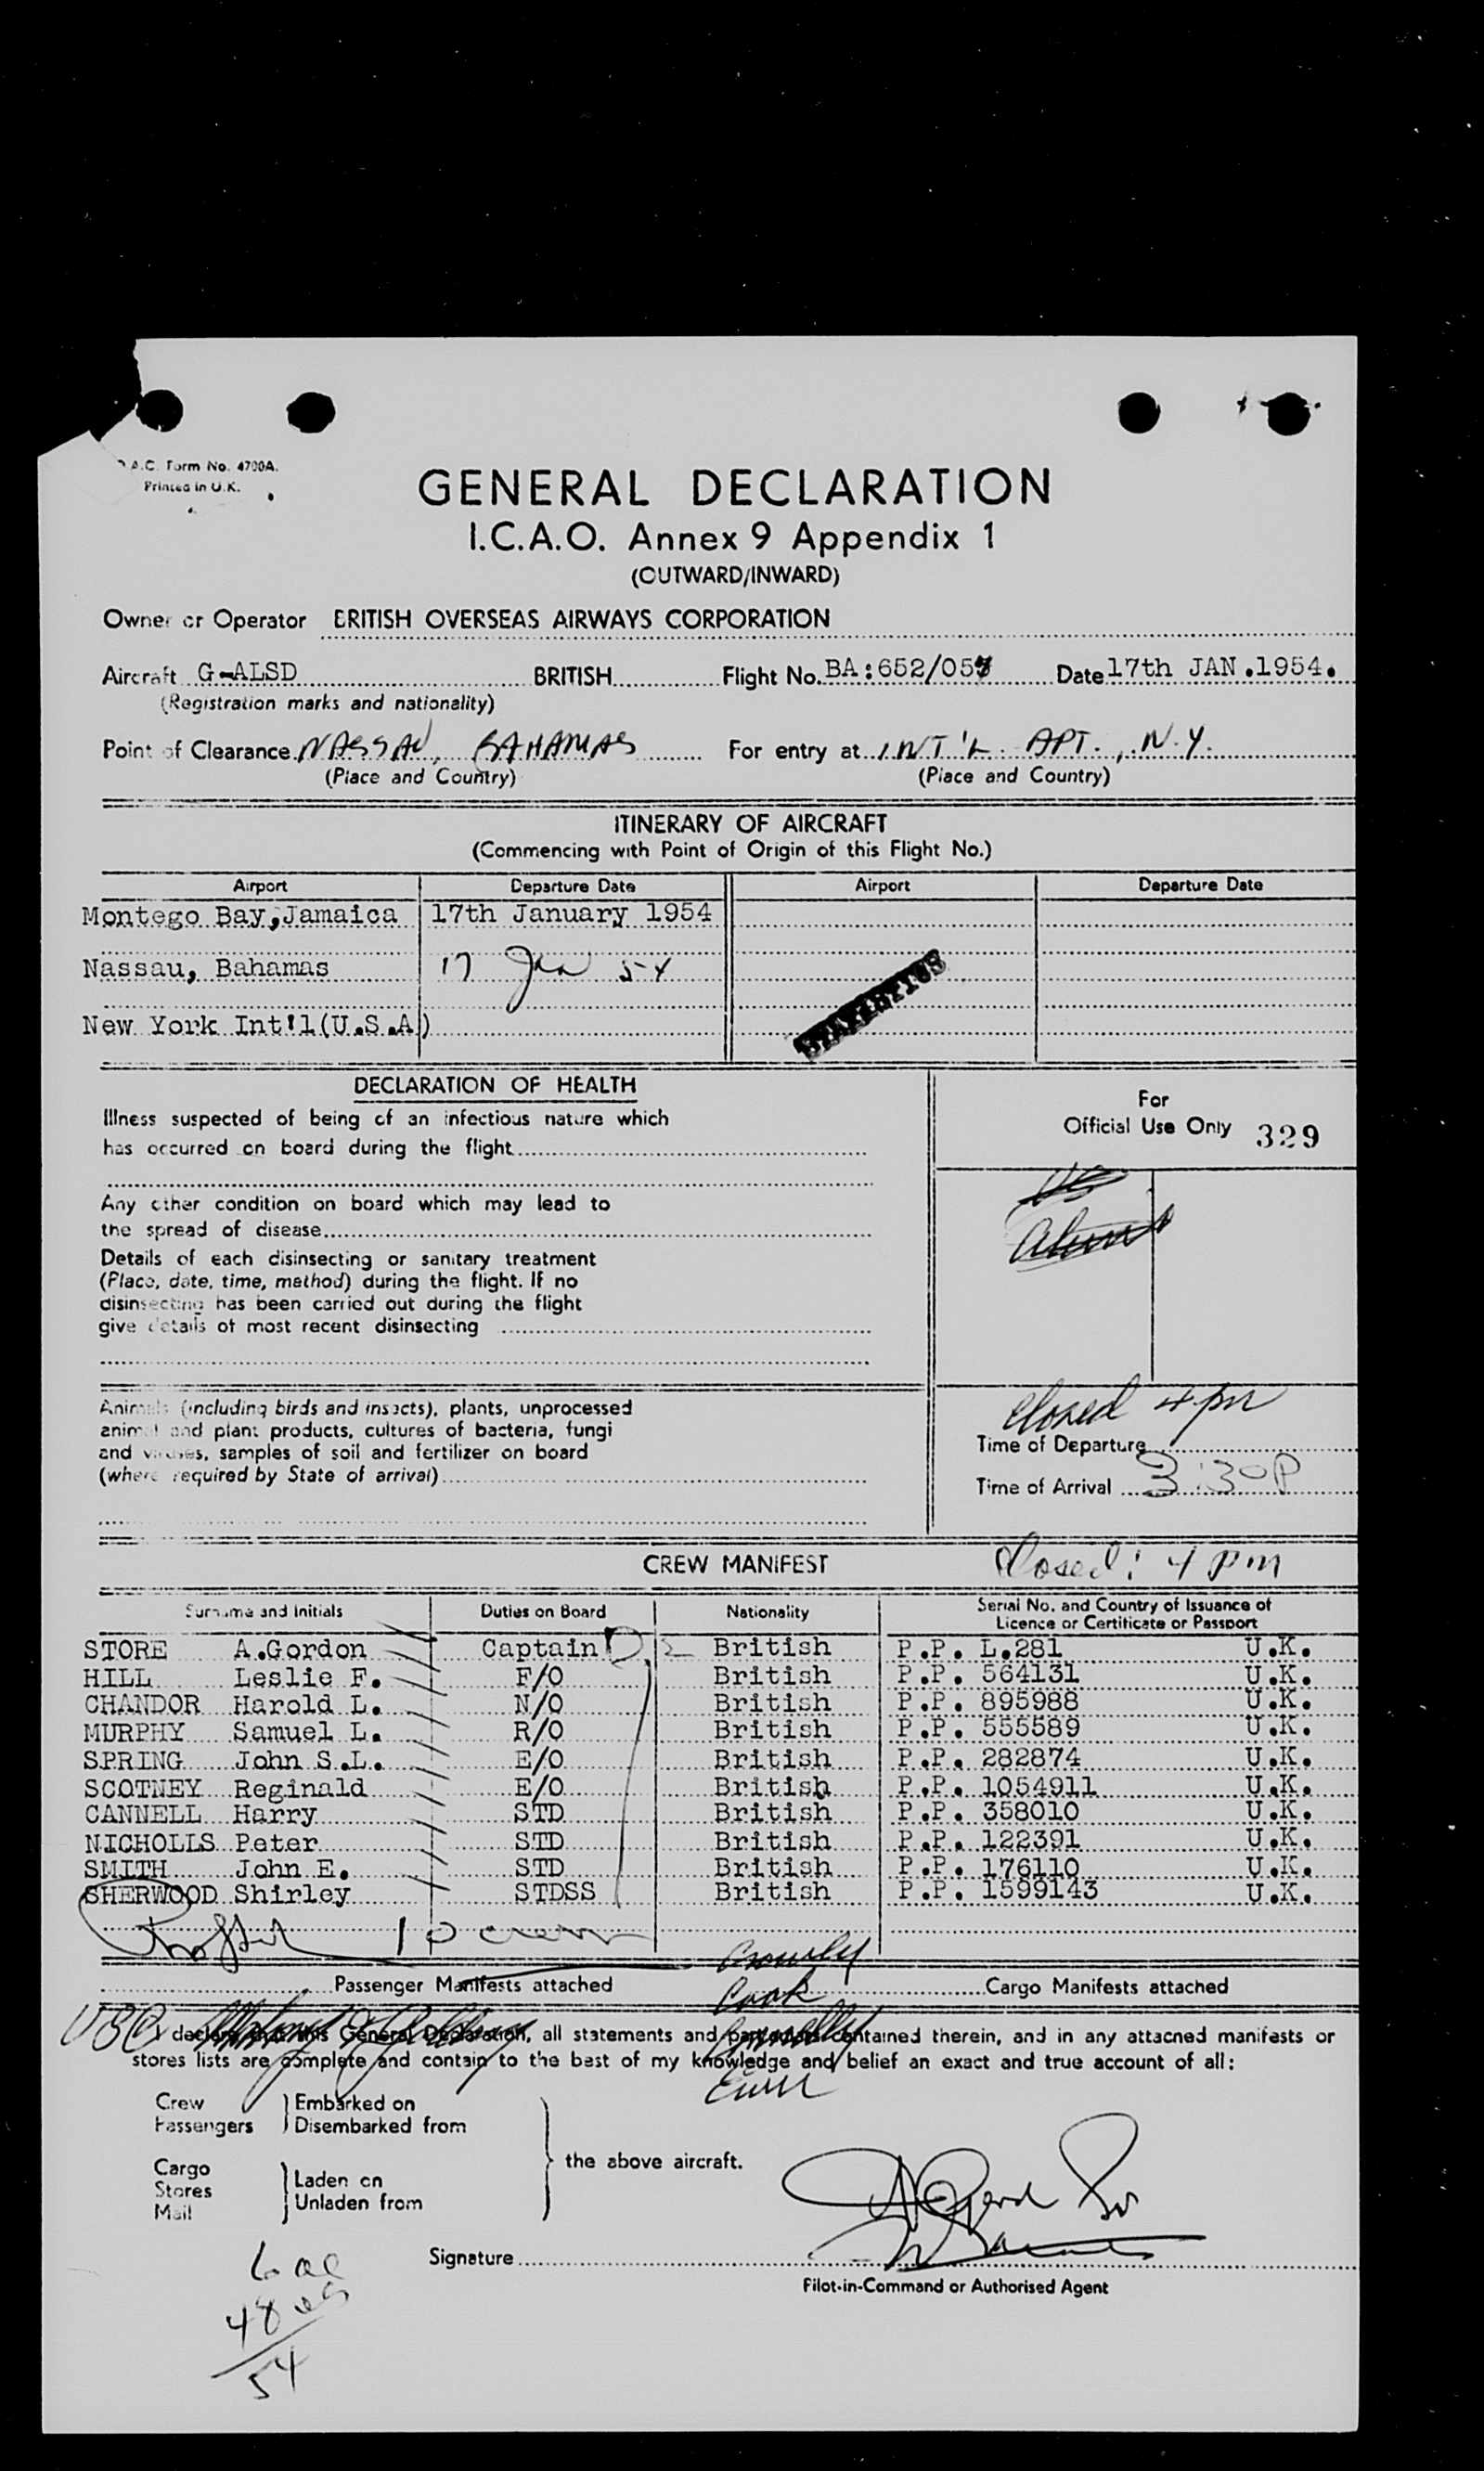 A.C. Form No. 4700A.
Printed in U.K.
GENERAL DECLARATION
I.C.A.O. Annex 9 Appendix 1
(OUTWARD/INWARD)
Owner or Operator BRITISH OVERSEAS AIRWAYS CORPORATION
Aircraft G-ALSD BRITISH Flight No. BA:652/05 Date 17th JAN.1954.
(Registration marks and nationality)
Point of Clearance NASSAU, BAHAMAS For entry at INT'L. APT., N.Y.
(Place and Country) (Place and Country)
ITINERARY OF AIRCRAFT
(Commencing with Point of Origin of this Flight No.)
Airport Departure Date Airport Departure Date
Montego Bay,Jamaica 17th January 1954
Nassau, Bahamas 17 Jan 54
New York Int'l(U.S.A)
DECLARATION OF HEALTH
Illness suspected of being of an infectious nature which
has occurred on board during the flight
Any other condition on board which may lead to
the spread of disease
Details of each disinsecting or sanitary treatment
(Place, date, time, method) during the flight. If no
disinsecting has been carried out during the flight
give details of most recent disinsecting
For
Official Use Only 329
Animals (including birds and insects), plants, unprocessed
animal and plant products, cultures of bacteria, fungi
and viruses, samples of soil and fertilizer on board
(where required by State of arrival)
Closed 4 pm
Time of Departure
Time of Arrival 3:30P
CREW MANIFEST Closed: 4 pm
Surname and Initials Duties on Board Nationality Serial No. and Country of Issuance of
Licence or Certificate or Passport
STORE A.Gordon Captain D 2 British P.P. L.281 U.K.
HILL Leslie F. F/O British P.P. 564131 U.K.
CHANDOR Harold L. N/O British P.P. 895988 U.K.
MURPHY Samuel L. R/O British P.P. 555589 U.K.
SPRING John S.L. E/O British P.P. 282874 U.K.
SCOTNEY Reginald E/O British P.P. 1054911 U.K.
CANNELL Harry STD British P.P. 358010 U.K.
NICHOLLS Peter STD British P.P. 122391 U.K.
SMITH John E. STD British P.P. 176110 U.K.
SHERWOOD Shirley STDSS British P.P. 1599143 U.K.
10 crew
Crowley
Passenger Manifests attached Cargo Manifests attached
Cook
I declare that this General Declaration, all statements and particulars contained therein, and in any attached manifests or
stores lists are complete and contain to the best of my knowledge and belief an exact and true account of all:
Crew Embarked on
Passengers Disembarked from
the above aircraft.
Cargo Laden on
Stores Unladen from
Mail
Signature
Pilot-in-Command or Authorised Agent
48
54